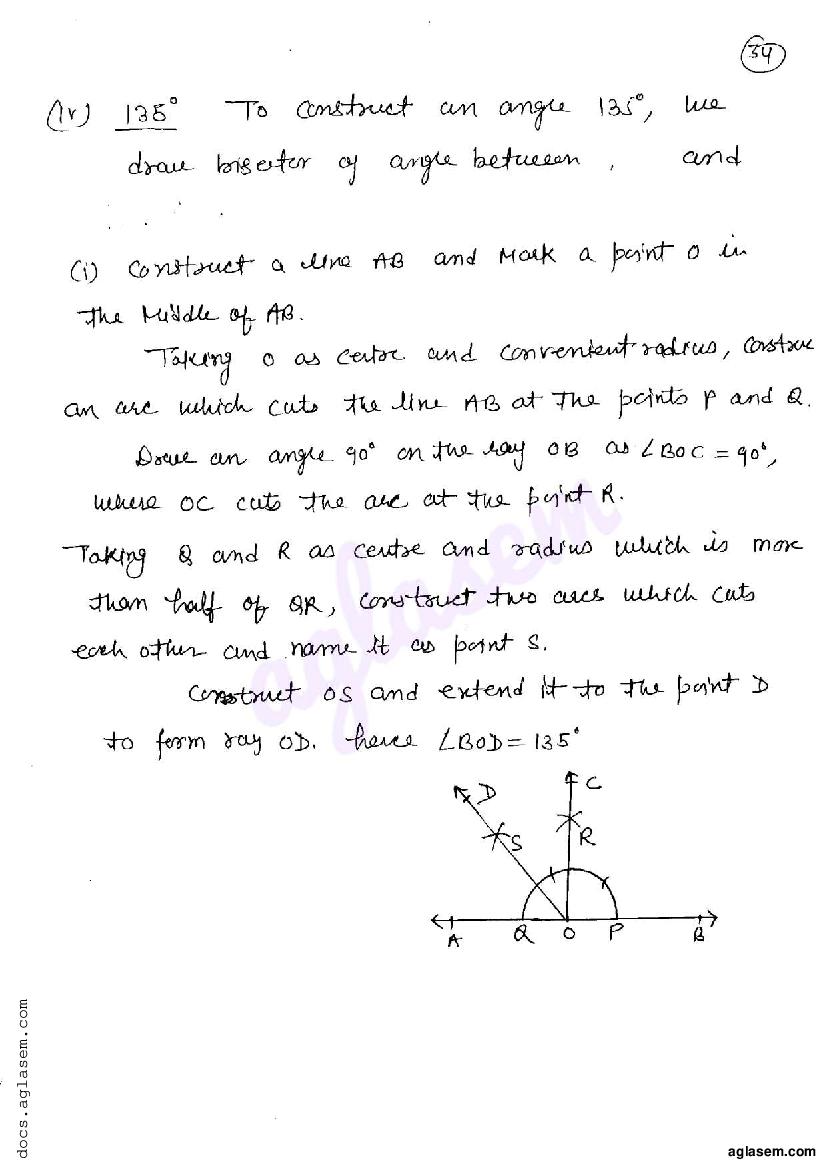 34
(iv) 135° To construct an angle 135°, we
draw bisector of angle between , and
(i) Construct a line AB and Mark a point O in
the Middle of AB.
Taking O as centre and convenient radius, construc
an arc which cuts the line AB at the points P and Q.
Draw an angle 90° on the ray OB as ∠BOC = 90°,
where OC cuts the arc at the point R.
Taking Q and R as centre and radius which is more
than half of QR, construct two arcs which cuts
each other and name it as point S.
Construct OS and extend it to the point D
to form ray OD. hence ∠BOD = 135°
D C
S R
A Q O P B
aglasem
docs.aglasem.com
aglasem.com